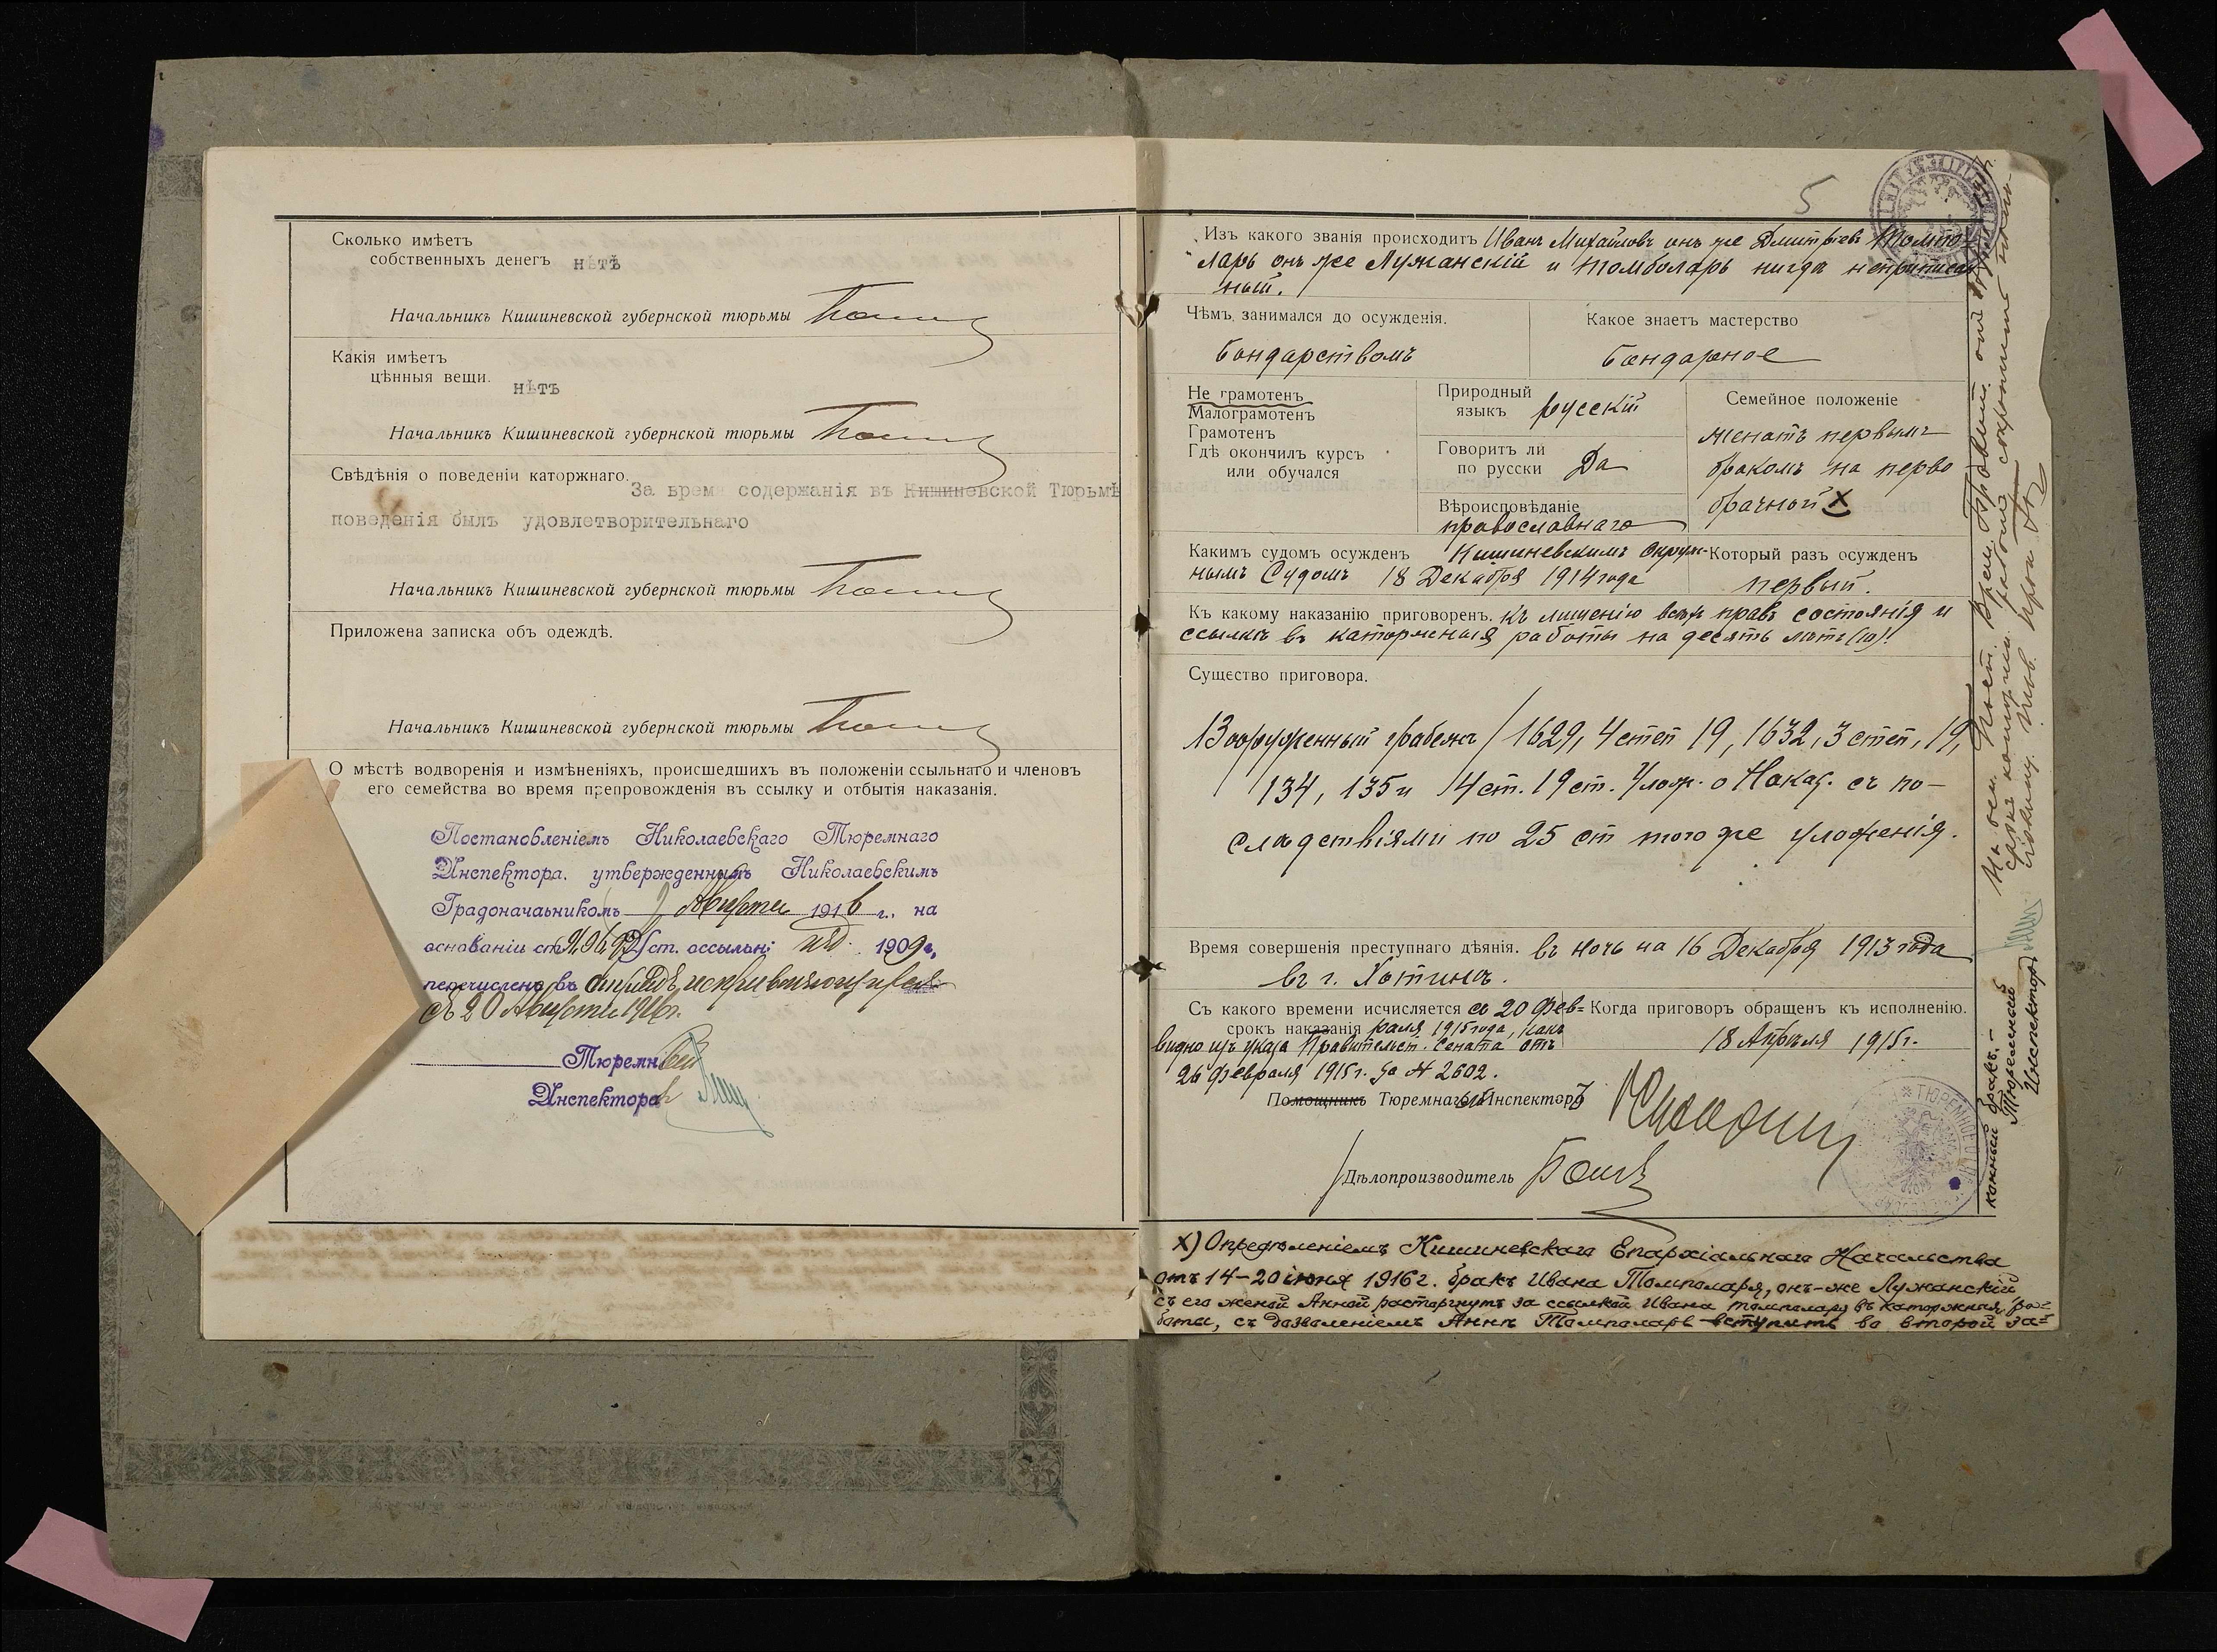 Сколько имѣетъ
собственныхъ денегъ нѣтъ
Начальникъ Кишиневской губернской тюрьмы
Какія имѣетъ
цѣнныя вещи. нѣтъ
Начальникъ Кишиневской губернской тюрьмы
Свѣдѣнія о поведеніи каторжнаго. За время содержанія въ Кишиневской Тюрьмѣ
поведенія былъ удовлетворительнаго
Начальникъ Кишиневской губернской тюрьмы
Приложена записка объ одеждѣ.
Начальникъ Кишиневской губернской тюрьмы
О мѣстѣ водворенія и измѣненіяхъ, происшедшихъ въ положеніи ссыльнаго и членовъ
его семейства во время препровожденія въ ссылку и отбытія наказанія.
Постановленіемъ Николаевскаго Тюремнаго
Инспектора, утвержденнымъ Николаевскимъ
Градоначальникомъ Августа 1916 г., на
основаніи ст. Уст. о ссыльн: изд. 1909 г.,
перечисленъ въ отрядъ исправляющихся
съ 20 Августа 1916г.
Тюремный
Инспекторъ
5
Изъ какого званія происходитъ Иванъ Михайловъ онъ же Дмитріевъ Томпо-
ларь онъ же Лужанскій и Томболарь нигдѣ неприписан
ный.
Чѣмъ занимался до осужденія.
бондарствомъ
Какое знаетъ мастерство
бондарное
Не грамотенъ
Малограмотенъ
Грамотенъ
Гдѣ окончилъ курсъ
или обучался
Природный
языкъ русскій
Говоритъ ли
по русски Да
Вѣроисповѣданіе
православнаго
Семейное положеніе
женатъ первымъ
бракомъ на перво
брачной X
Какимъ судомъ осужденъ Кишиневскимъ Окруж-
нымъ Судомъ 18 Декабря 1914 года
Который разъ осужденъ
первый.
Къ какому наказанію приговоренъ. къ лишенію всѣхъ правъ состоянія и
ссылкѣ въ каторжныя работы на десять лѣтъ (10).
Существо приговора.
Вооруженный грабежъ / 1629, 4 степ 19, 1632, 3 степ, 19,
134, 135 и 4 ст. 19 ст. Улож. о Наказ. съ по-
слѣдствіями по 25 ст того же уложенія.
Время совершенія преступнаго дѣянія. въ ночь на 16 Декабря 1913 года
въ г. Хотинѣ.
Съ какого времени исчисляется съ 20 Фев-
срокъ наказанія раля 1915 года, какъ
видно изъ указа Правительст. Сената отъ
26 Февраля 1915г. за № 2602.
Когда приговоръ обращенъ къ исполненію.
18 Апрѣля 1915г.
Помощникъ Тюремный Инспекторъ
Дѣлопроизводитель
X) Опредѣленіемъ Кишиневскаго Епархіальнаго Начальства
отъ 14-20 іюня 1916г. бракъ Ивана Томполаря, онъ-же Лужанскій
съ его женой Анной расторгнутъ за ссылкой Ивана Томполаря въ каторжныя ра=
боты, съ дозволеніемъ Аннѣ Томполарь вступить во второй за=
конный бракъ.-
Тюремный
Инспекторъ